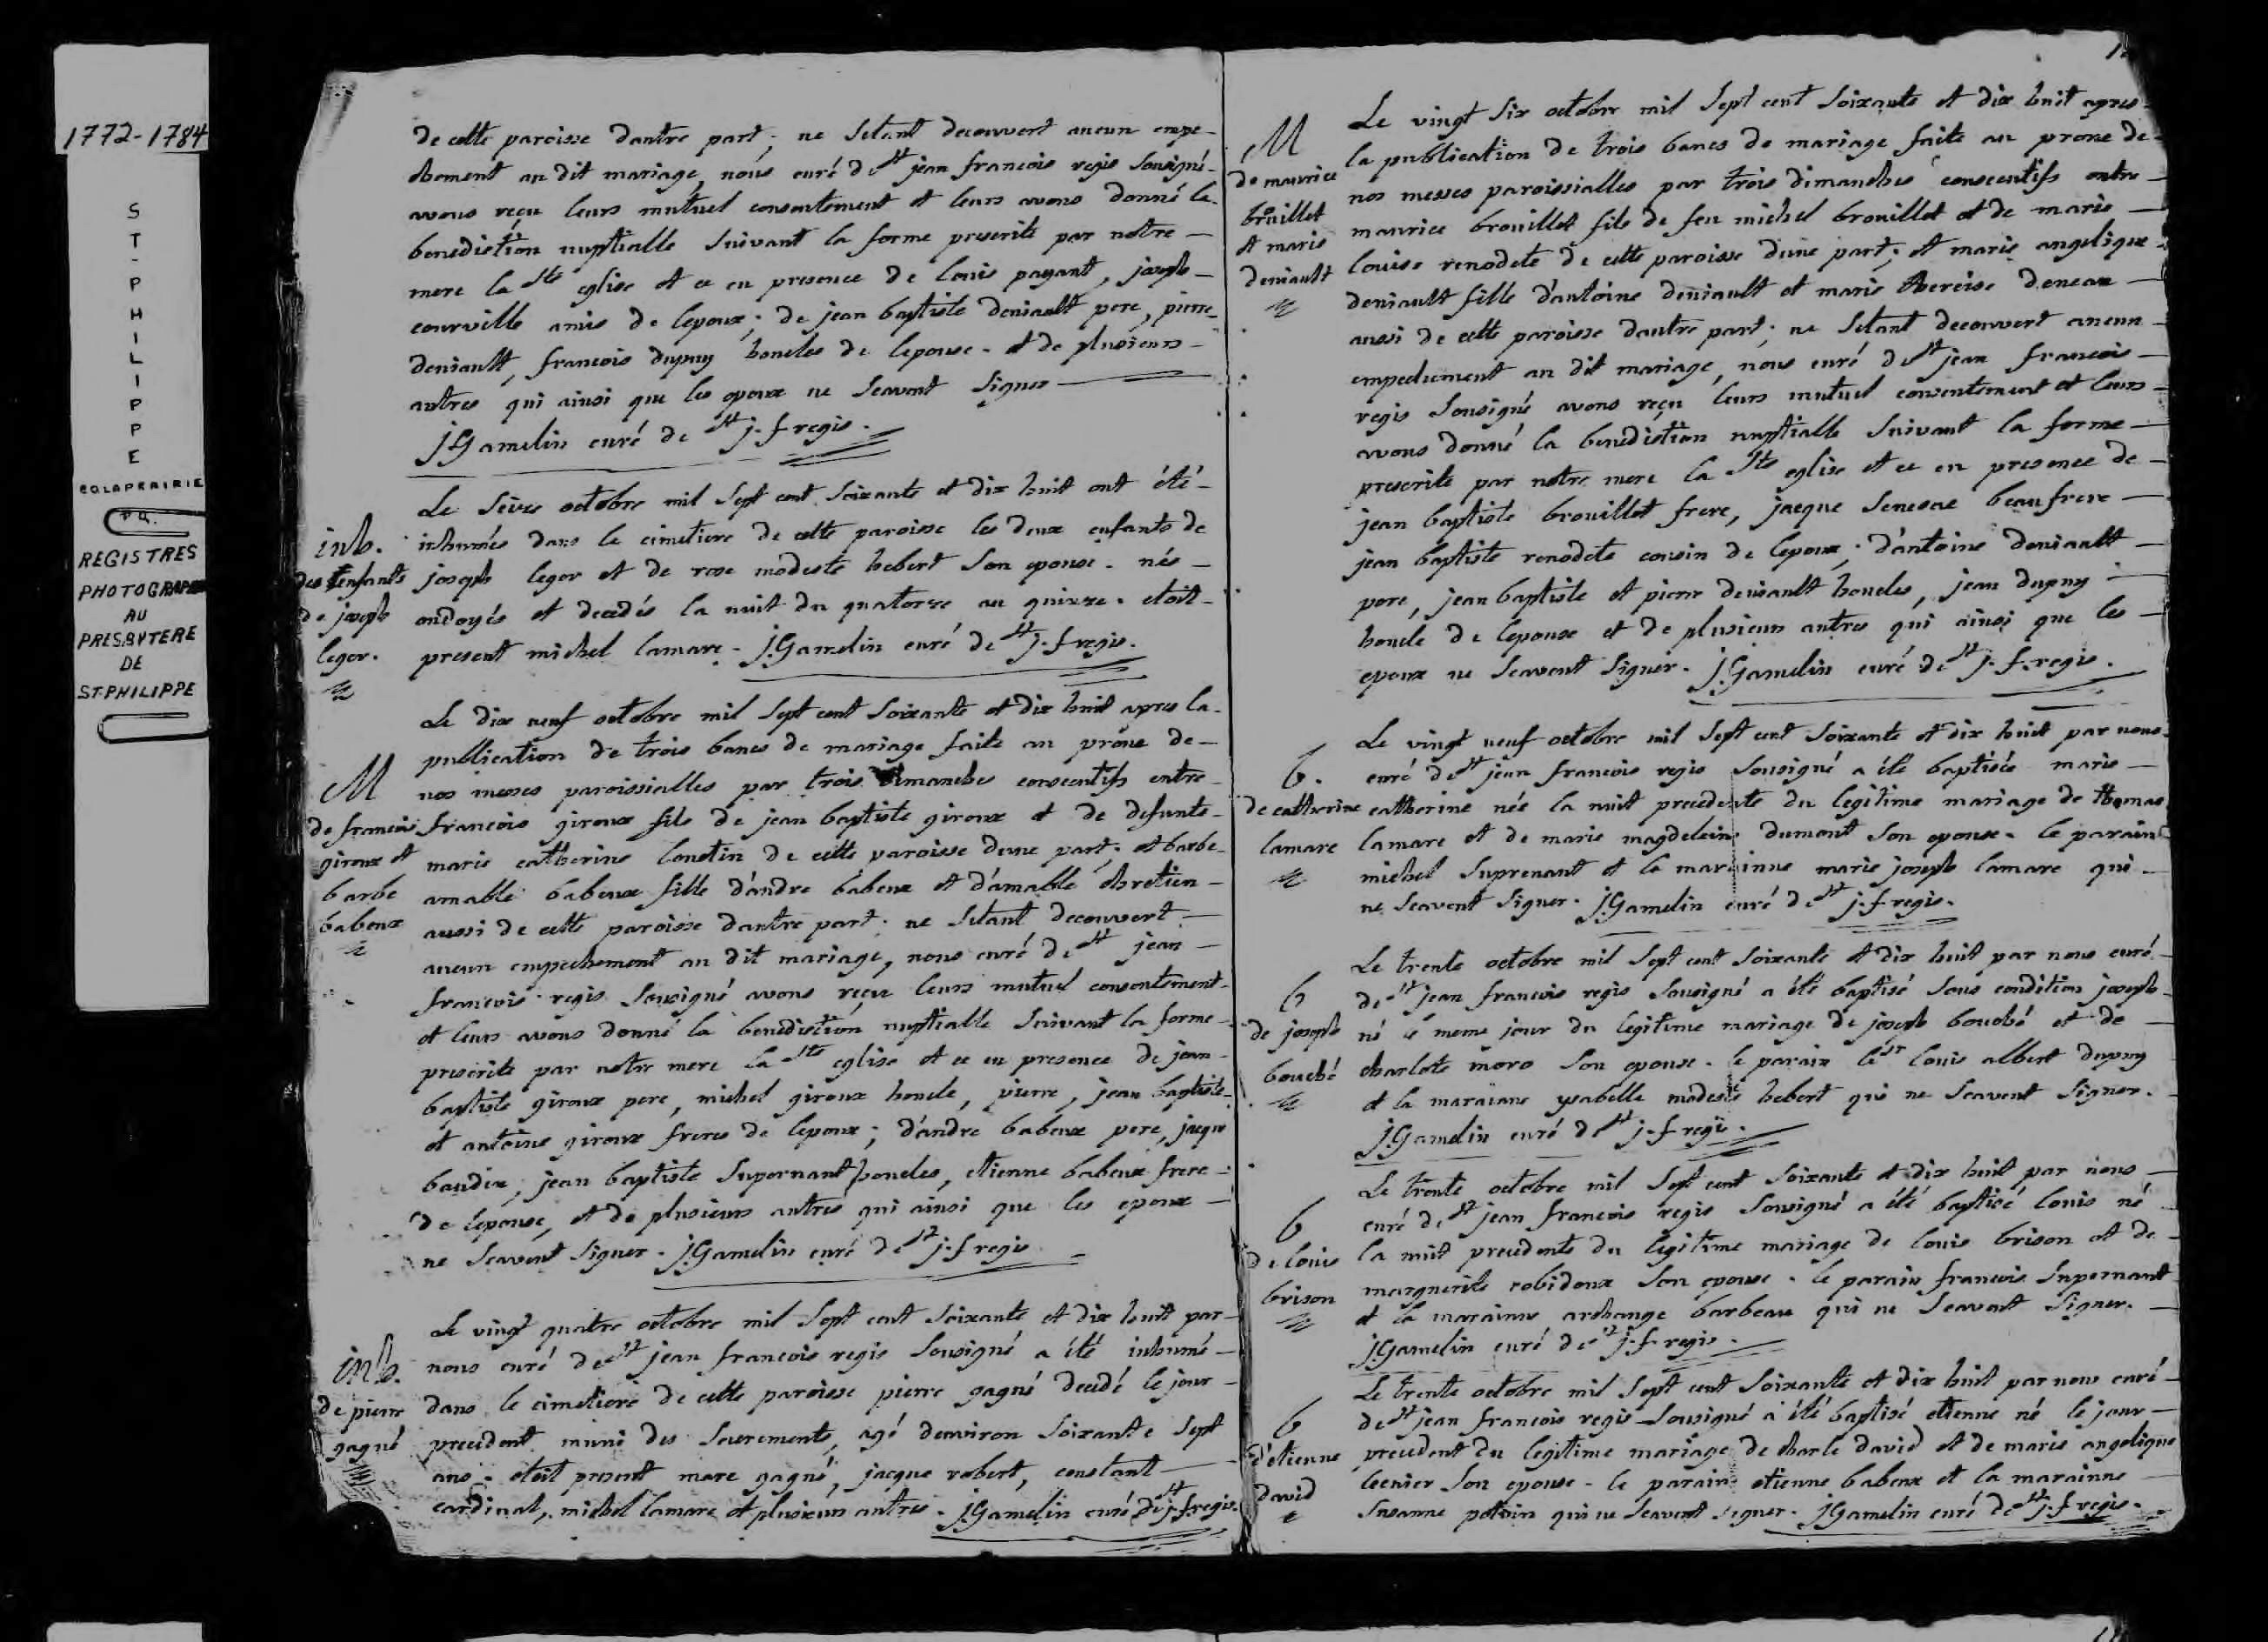 1772-1784
S
T
-
P
H
I
L
I
P
P
E
COLAPRAIRIE
P.Q.
REGISTRES
PHOTOGRAPHIÉS
AU
PRESBYTERE
DE
ST-PHILIPPE
de cette paroisse dautre part; ne setant decouvert aucun empe-
chement au dit mariage, nous curé de st jean francois regis sousigné
avons reçu leurs mutuel consentement et leurs avons donné la
benediction nuptialle suivant la forme prescrite par notre
mere la ste eglise et ce en presence de louis payant, joseph
courville amis de lepoux; de jean baptiste deniault pere, pierre
deniault, francois dupuy honcles de lepouse. et de plusieurs
autres qui ainsi que les epoux ne scavent signer
J. Gamelin curé de st j. f regis.
Le seize octobre mil sept cent soixante et dix huit ont été
inh. inhumés dans le cimetiere de cette paroisse les deux enfants de
des enfants joseph leger et de rose modeste hebert son epouse. nés
de joseph ondoyés et decedés la nuit du quatorze au quinze. etoit
leger. present michel lamare. J. Gamelin curé de st j. f regis.
Le dix neuf octobre mil sept cent soixante et dix huit apres la
publication de trois bancs de mariage faite au prône de
M nos messes paroissialles par trois dimanches consecutifs entre
de francois francois giroux fils de jean baptiste giroux et de defunte
giroux et marie catherine lonctin de cette paroisse dune part; et barbe
barbe amable babeux fille d'andre babeux et d'amable chretien
babeux aussi de cette paroisse dautre part; ne setant decouvert
aucun empechement au dit mariage, nous curé de st jean
francois regis sousigné avons reçu leurs mutuel consentement
et leurs avons donné la benediction nuptialle suivant la forme
prescrite par notre mere la ste eglise et ce en presence de jean
baptiste giroux pere, michel giroux honcle, pierre, jean baptiste
et antoine giroux freres de lepoux; d'andre babeux pere, jacque
baudin, jean baptiste supernant honcles, etienne babeux frere
de lepouse, et de plusieurs autres qui ainsi que les epoux
ne scavent signer. J. Gamelin curé de st j. f regis
Le vingt quatre octobre mil sept cent soixante et dix huit par
inh. nous curé de st jean francois regis sousigné a été inhumé
de pierre dans le cimetiere de cette paroisse pierre gagné decedé le jour
gagné precedent muni des sacrements, agé denviron soixante sept
ans. etoit present marc gagné, jacque robert, constant
cardinal, michel lamare et plusieurs autres. J. Gamelin curé de st j. f regis.
Le vingt six octobre mil sept cent soixante et dix huit apres
M la publication de trois bancs de mariage faite au prone de
de maurice nos messes paroissialles par trois dimanches consecutifs entre
brouillet maurice brouillet fils de feu michel brouillet et de marie
et marie louise renodete de cette paroisse dune part; et marie angelique
deniault deniault fille d'antoine deniault et marie therese deneau
aussi de cette paroisse dautre part; ne setant decouvert aucun
empechement au dit mariage, nous curé de st jean francois
regis sousigné avons reçu leurs mutuel consentement et leurs
avons donné la benediction nuptialle suivant la forme
prescrite par notre mere la ste eglise et ce en presence de
jean baptiste brouillet frere, jacque senecac beaufrere
jean baptiste renodete cousin de lepoux; d'antoine deniault
pere, jean baptiste et pierre deniault honcles, jean dupuy
honcle de lepouse et de plusieurs autres qui ainsi que les
epoux ne scavent signer. J. Gamelin curé de st j. f. regis.
Le vingt neuf octobre mil sept cent soixante et dix huit par nous
b. curé de st jean francois regis sousigné a été baptisée marie
de catherine catherine née la nuit precedente du legitime mariage de thomas
lamare lamare et de marie magdeleine dumont son epouse. le parain
michel suprenant et la marainne marie joseph lamare qui
ne scavent signer. J. Gamelin curé de st j. f regis.
Le trente octobre mil sept cent soixante et dix huit par nous curé
b de st jean francois regis sousigné a été baptisé sous condition joseph
de joseph né le meme jour du legitime mariage de joseph bouché et de
bouché charlote moro son epouse. le parain le sr louis albert dupuy
et la maraiane ysabelle modeste hebert qui ne scavent signer.
J. Gamelin curé de st j. f regis.
Le trente octobre mil sept cent soixante et dix huit par nous
b curé de st jean francois regis sousigné a été baptisé louis né
de louis la nuit precedente du legitime mariage de louis brison et de
brison marguerite robidoux son epouse. le parain francois supernant
et la marainne archange barbeau qui ne scavent signer.
J. Gamelin curé de st j. f. regis.
Le trente octobre mil sept cent soixante et dix huit par nous curé
b de st jean francois regis sousigné a été baptisé etienne né le jour
d'etienne precedent du legitime mariage de charle david et de marie angelique
david son epouse. le parain etienne babeux et la marainne
susanne potvin qui ne scavent signer. J. Gamelin curé de st j. f regis.